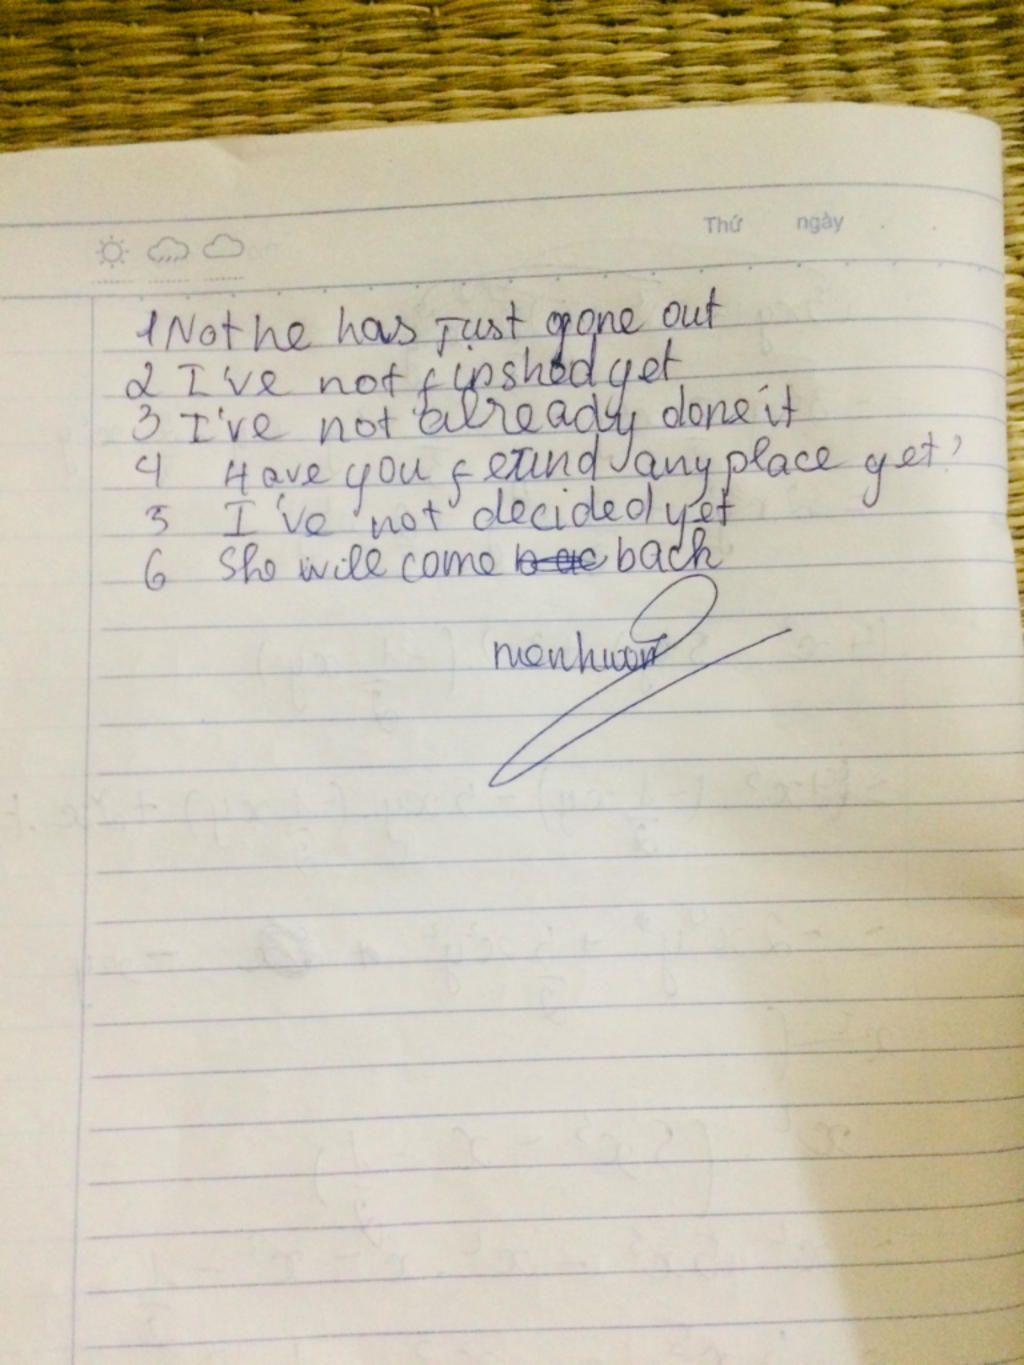 Thứ ngày
1 Not he has just gone out
2 I've not finshed yet
3 I've not already done it
4 Have you found any place yet?
5 I've not decided yet
6 She will come back